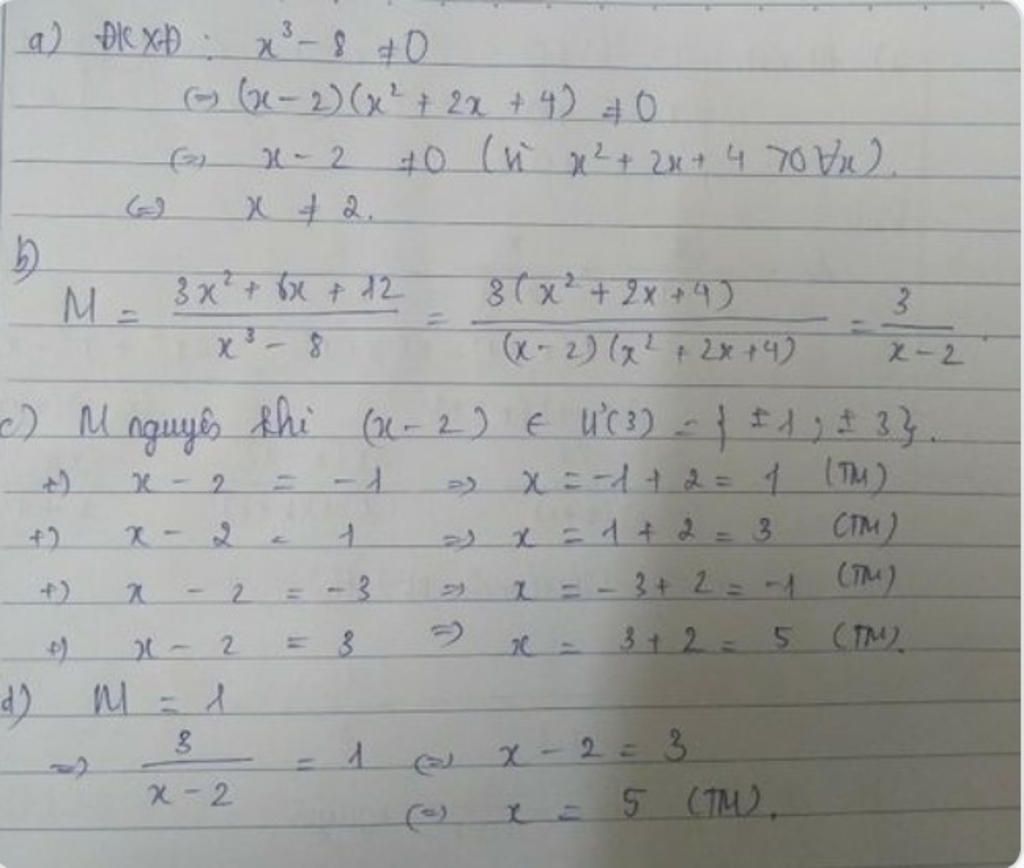 a) ĐKXĐ: x³ - 8 ≠ 0
(=) (x - 2)(x² + 2x + 4) ≠ 0
(=) x - 2 ≠ 0 (Vì x² + 2x + 4 > 0 ∀x).
(=) x ≠ 2.
b)
M = (3x² + 6x + 12)/(x³ - 8) = 3(x² + 2x + 4)/((x - 2)(x² + 2x + 4)) = 3/(x - 2).
c) M nguyên khi (x - 2) ∈ Ư(3) = { ±1 ; ±3}.
+) x - 2 = -1 => x = -1 + 2 = 1 (TM)
+) x - 2 = 1 => x = 1 + 2 = 3 (TM)
+) x - 2 = -3 => x = -3 + 2 = -1 (TM)
+) x - 2 = 3 => x = 3 + 2 = 5 (TM).
d) M = 1
=> 3/(x - 2) = 1 (=) x - 2 = 3
(=) x = 5 (TM).